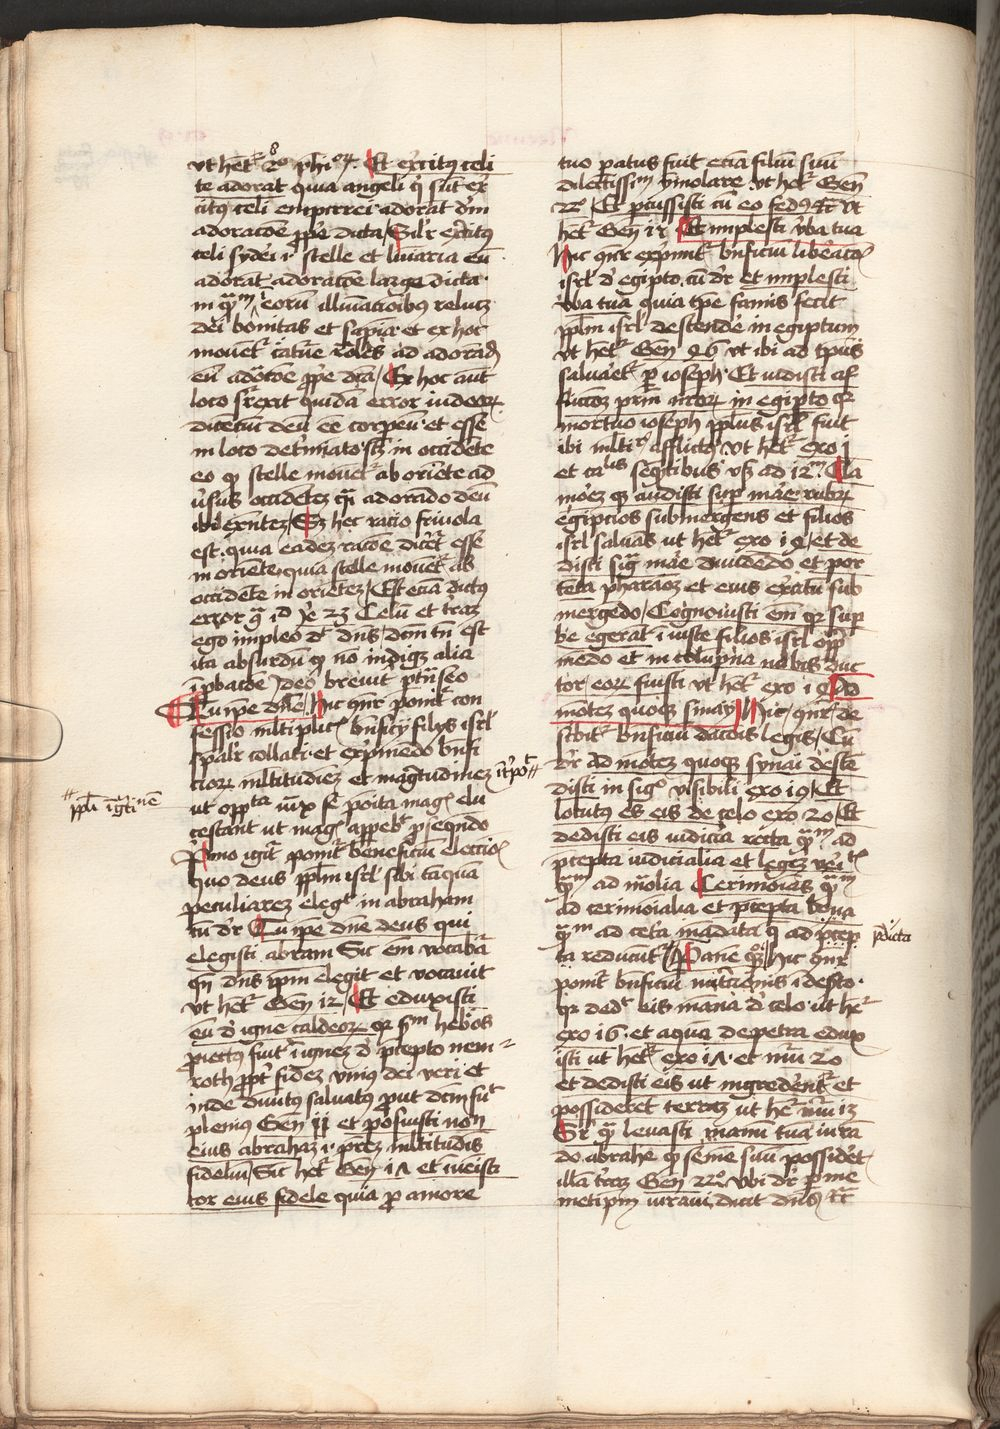 ut het᷑ 8 ph̅i⁊. Et exercitus celi
te adorat quia angeli q̅ su̅t exer
citus celi emperrei adorat d̅m
adorac̅oe p̅p̅e dicta / Sil̅r exercitus
celi syderei ⁊ stelle et lu̅iaria eu̅
adorat adorac̅oe large dicta
in qua̅tu̅ eoru̅ illui̅ac̅oibus relucet
dei bonitas et sapi̅a et ex hoc
mouet᷑ c̅atur̅e r̅o̅les ad adora̅d̅
eu̅ ado̅c̅oe p̅p̅e d̅c̅a / Ex hoc aut̅
loco s̅rexit quida̅ error iudeoꝝ
dicenciu̅ deu̅ e̅e̅ corpeu̅ et esse
in loco det̅minato s̅z in occide̅te
eo q̅ stelle mouet᷑ ab orie̅te ad
u̅sus occide̅tez q̅i adora̅do deu̅
ibi ex̅nte̅z / S̅z hec racio friuola
est quia eadez rac̅oe dic̅et᷑ esse
in orie̅te quia stelle mouet᷑ ab
occide̅te in orie̅tez / Est eciā dictus
error q̅ id Je̅ 23 Celu̅ et t̅raz
ego impleo d̅t d̅ns / d̅c̅m t̅n est
ita absurdu̅ q̅ no̅ indiget alia
i̅p̅bac̅oe Ideo breuit̅ p̅tra̅seo
Tu ip̅e d̅ne / hic q̅nr ponit᷑ con
fessio m̅ltiplicis b̅nficij filijs isr̅l
sp̅al̅r collati et expm̅endo b̅nfi
cioꝝ m̅ltitudiez et mag̅tudinez i̅t̅po᷑ #
# pp̅li i̅g̅ti⁊ne̅
ut opp̅ta iux̅ se̅ po̅ita mag̅ elu
cescant ut mag̅ app̅eb᷑ p̅ seque̅do
Primo igit᷑ ponit᷑ beneficiu̅ eleccio̅is
quo deus pp̅lm isr̅l sibi ta̅qua̅
peculiarez eleg̅t in abraham
cu̅ d̅r Tu ip̅e d̅ne deus qui
elegisti abram Sic em̅ vocaba̅t᷑
q̅n d̅ns ip̅m elegit et vocauit
ut het᷑ Gen̅ 12 / Et eduxisti
eu̅ d̅ igne caldeoꝝ q̅r s̅m hebreos
proiectus fuit i̅ ignez d̅ p̅cepto nem
roth p̅pt̅ fidez vniꝰ dei veri et
inde diuinitꝰ saluatꝰ prout d̅c̅m fu̅t
plenius Gen̅ ii et posuisti nom̅
eius abrahaz ⁊ p̅r̅ez m̅ltitudis
fidelium / Sic het᷑ Gen̅ 17 et inuenisti
cor eius fidele quia pro amore
tuo paratus fuit eciā filiu̅ suu̅
dilectissi̅m y̅molare ut het᷑ Gen̅
22 / Et percussisti cu̅ eo fedus ⁊c̅ ut
het᷑ Gen̅ 15 Et implesti v̅ba tua
Hic q̅nr exp̅mit᷑ b̅nficiu̅ lib̅eac̅ois
isr̅l d̅ egipto cu̅ d̅r et implesti
v̅ba tua quia t̅pe famis fecit
pp̅lm isr̅l descende̅ in egiptum
ut het᷑ Gen̅ 46 ut ibi ad te̅pus
saluaret᷑ p̅ ioseph Et uidisti af
flicc̅oz p̅rm n̅roꝝ in egipto q̅r
mortuo ioseph pp̅lus isr̅l fuit
ibi m̅ltu̅ afflictꝰ ut het᷑ exo i
et ca̅lis seq̅ntibus usq̅ ad 12 / Cla
morez q̅z audisti sup̅ ma̅re rubrꝝ
egipcios submergens et filios
isr̅l saluās ut het᷑ exo 14 / et de
disti sig̅ ma̅re diuide̅do et por
te̅ta in pharaoz et eius ex̅itu̅ sub
mergedo / Cognouisti em̅ q̅r sup̅
be egera̅t iniuste filios isr̅l opp̅
mendo et in colu̅pna nubis duc
tor eoꝝ fuisti ut het᷑ exo 14 / Ad
montez quoqz sinay / Hic q̅nr de
scribit᷑ b̅nficiu̅ dac̅ois legis / Cu̅
d̅r ad montez quoqz synai desce̅
disti in sig̅o visibili exo 19 / Et
locutus es eis de celo exo 20 / Et
dedisti eis iudicia recta qua̅m ad
p̅cepta iudicialia et legez v̅ei᷑t
q̅m ad m̅olia Cerimonias q̅m
ad cerimoialia et p̅cepta bona
q̅m ad ceta̅ mandata q̅ ad p̅cep
p̅dicta
ta reducunt᷑ / Pane q̅z / hic q̅nr
ponit᷑ b̅nficiu̅ nut̅ic̅ois i̅ desto
q̅r ded̅t eis ma̅na d̅ celo ut he᷑
exo 16 et aqua de petra edux
isti ut het᷑ exo 17 et nu̅i 20
et dedisti eis ut ingrederent᷑ et
posside̅ret terraz ut he᷑ nu̅i 13
S̅r q̅ leuasti manu̅ tua̅ iura̅
do abrahe q̅ seme̅ suu̅ posside̅t
illa̅ t̅raz Gen̅ 22 vbi d̅r p̅ me
metip̅m iuraui dicit d̅ns ⁊c̅